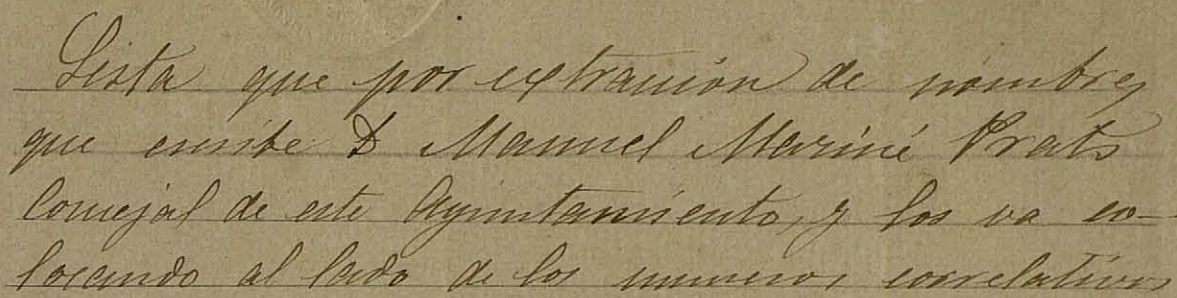 Lista que por extraccion de nombres
que escribe D Manuel Mariné Prats
Concejal de este Ayuntamiento, y los va co-
locando al lado de los numeros correlativos